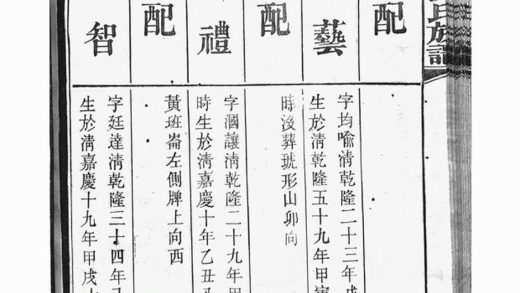 氏族譜
配
藝
字均喻清乾隆二十三年戊
生於清乾隆五十九年甲寅
配
時沒葬琥形山卯向
禮
字國讓清乾隆二十九年
時生於清嘉慶十年乙丑
配
黃班崙左側牌上向西
智
字廷達清乾隆三十四年
生於清嘉慶十九年甲戌